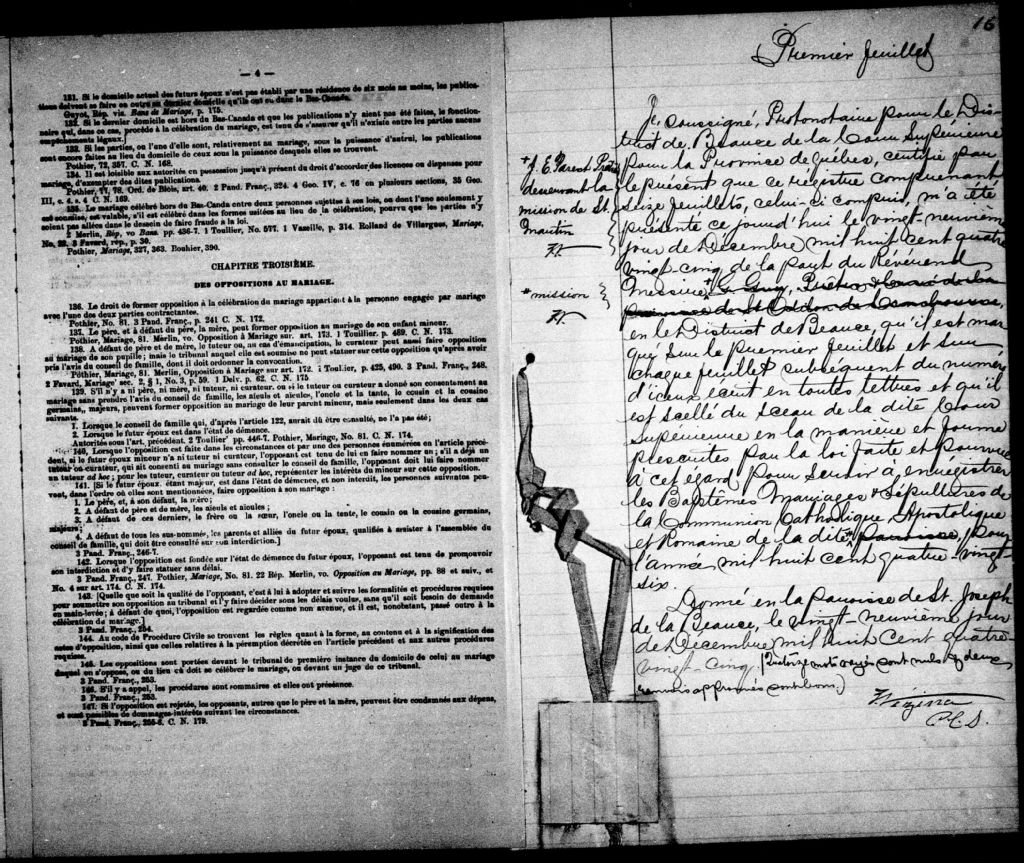 — 4 —
131. Si le domicile actuel des futurs époux n'est pas établi par une résidence de six mois au moins, les publica-
tions doivent se faire en outre au dernier domicile qu'ils ont eu dans le Bas-Canada.
Guyot, Rép. vis. Bans de Mariage, p. 175.
132. Si le dernier domicile est hors du Bas-Canada et que les publications n'y aient pas été faites, le fonction-
naire qui, dans ce cas, procède à la célébration du mariage, est tenu de s'assurer qu'il n'existe entre les parties aucuns
empêchements légaux.
133. Si les parties, ou l'une d'elle sont, relativement au mariage, sous la puissance d'autrui, les publications
sont encore faites au lieu du domicile de ceux sous la puissance desquels elles se trouvent.
Pothier, 72, 357. C. N. 168.
134. Il est loisible aux autorités en possession jusqu'à présent du droit d'accorder des licences ou dispenses pour
mariage, d'exempter des dites publications.
Pothier, 77, 78. Ord. de Blois, art. 40. 2 Pand. Franç., 324. 4 Geo. IV, c. 76 en plusieurs sections, 35 Geo.
III, c. 4, s. 4 C. N. 169.
135. Le mariage célébré hors du Bas-Canada entre deux personnes sujettes à ses lois, ou dont l'une seulement y
est soumise, est valable, s'il est célébré dans les formes usitées au lieu de la célébration, pourvu que les parties n'y
soient pas allées dans le dessein de faire fraude à la loi.
2 Merlin, Rép, vo Bans. pp. 436-7. 1 Toullier, No. 577. 1 Vazeille, p. 314. Rolland de Villargues, Mariage,
No. 22. 3 Favard, rép., p. 30.
Pothier, Mariage, 327, 363. Rouhier, 390.
CHAPITRE TROISIÈME.
DES OPPOSITIONS AU MARIAGE.
136. Le droit de former opposition à la célébration du mariage appartient à la personne engagée par mariage
avec l'une des deux parties contractantes.
Pothier, No. 81. 3 Pand. Franç., p. 241 C. N. 172.
137. Le père, et à défaut du père, la mère, peut former opposition au mariage de son enfant mineur.
Pothier, Mariage, 81. Merlin, vo. Opposition à Mariage sur. art. 173. 1 Toullier. p. 489. C. N. 173.
138. A défaut de père et de mère, le tuteur ou, au cas d'émancipation, le curateur peut aussi faire opposition
au mariage de son pupille; mais le tribunal auquel elle est soumise ne peut statuer sur cette opposition qu'après avoir
pris l'avis du conseil de famille, dont il doit ordonner la convocation.
Pothier, Mariage, 81. Merlin, Opposition à Mariage sur art. 172. 1 Toullier, p. 425, 490. 3 Pand. Franç., 248.
2 Favard, Mariage sec. 2, § 1, No. 3, p. 59. 1 Delv. p. 62. C. N. 175
139. S'il n'y a ni père, ni mère, ni tuteur, ni curateur, ou si le tuteur ou curateur a donné son consentement au
mariage sans prendre l'avis du conseil de famille, les aïeuls et aïeules, l'oncle et la tante, le cousin et la cousine
germains, majeurs, peuvent former opposition au mariage de leur parent mineur, mais seulement dans les deux cas
suivants.
1. Lorsque le conseil de famille qui, d'après l'article 122, aurait dû être consulté, ne l'a pas été;
2. Lorsque le futur époux est dans l'état de démence.
Autorités sous l'art. précédent. 2 Toullier pp. 446-7. Pothier, Mariage, No. 81. C. N. 174.
140. Lorsque l'opposition est faite dans les circonstances et par une des personnes énumérées en l'article précé-
dent, si le futur époux mineur n'a ni tuteur ni curateur, l'opposant est tenu de lui en faire nommer un; s'il a déjà un
tuteur ou curateur, qui ait consenti au mariage sans consulter le conseil de famille, l'opposant doit lui faire nommer
un tuteur ad hoc; pour les tuteur, curateur ou tuteur ad hoc, représenter les intérêts du mineur sur cette opposition.
141. Si le futur époux. étant majeur, est dans l'état de démence, et non interdit, les personnes suivantes peu-
vent, dans l'ordre où elles sont mentionnées, faire opposition à son mariage :
1. Le père, et, à son défaut, la mère;
2. A défaut de père et de mère, les aïeuls et aïeules;
3. A défaut de ces derniers, le frère ou la sœur, l'oncle ou la tante, le cousin ou la cousine germains,
majeurs;
4. A défaut de tous les sus-nommés, les parents et alliés du futur époux, qualifiés à assister à l'assemblée du
conseil de famille, qui doit être consulté sur son interdiction.]
3 Pand. Franç., 246-7.
142. Lorsque l'opposition est fondée sur l'état de démence du futur époux, l'opposant est tenu de promouvoir
son interdiction et d'y faire statuer sans délai.
3 Pand. Franç., 247. Pothier, Mariage, No. 81. 22 Rép. Merlin, vo. Opposition au Mariage, pp. 88 et suiv., et
No. 4 sur art. 174. C. N. 174.
143. [Quelle que soit la qualité de l'opposant, c'est à lui à adopter et suivre les formalités et procédures requises
pour soumettre son opposition au tribunal et l'y faire décider sous les délais voulus, sans qu'il soit besoin de demande
en main-levée; à défaut de quoi, l'opposition est regardée comme non avenue, et il est, nonobstant, passé outre à la
célébration du mariage.]
3 Pand. Franç., 254.
144. Au code de Procédure Civile se trouvent les règles quant à la forme, au contenu et à la signification des
actes d'opposition, ainsi que celles relatives à la péremption décrétée en l'article précédent et aux autres procédures
requises.
145. Les oppositions sont portées devant le tribunal de première instance du domicile de celui au mariage
duquel on s'oppose, ou du lieu où doit se célébrer le mariage, ou devant un juge de ce tribunal.
3 Pand. Franç., 253.
146. S'il y a appel, les procédures sont sommaires et elles ont préséance.
3 Pand. Franç., 253.
147. Si l'opposition est rejetée, les opposants, autres que le père et la mère, peuvent être condamnés aux dépens,
et sont passibles de dommages-intérêts suivant les circonstances.
3 Pand. Franç., 256-8. C. N. 179.
16
Premier feuillet
Je, soussigné, Protonotaire pour le Dis-
trict de Beauce de la Cour Supérieure
pour la Province de Québec, certifie par
le présent que ce régistre comprenant
seize feuillets, celui-ci compris, m'a été
présenté ce jourd'hui le vingt-neuvième
jour de Décembre mil huit cent quatre
vingt-cinq de la part du Révérend
Messire + Guy, Prêtre + Curé de la
paroisse de St
en le District de Beauce, qu'il est mar
qué sur le premier feuillet et sur
chaque feuillet subséquent du numéro
d'iceux écrit en toutes lettres et qu'il
est scellé du sceau de la dite Cour
Supérieure en la manière et forme
prescrites par la loi faite et pourvue
à cet égard pour servir à enregistrer
les Baptêmes Mariages & Sépultures de
la Communion Catholique, Apostolique
et Romaine de la dite * Paroisse, pour
l'année mil huit cent quatre-vingt-
six.
Donné en la paroisse de St. Joseph
de la Beauce, le vingt-neuvième jour
de Décembre mil huit cent quatre-
vingt-cinq. (Quatorze mots rayés sont nuls & deux
renvois approuvés sont bons.)
Vézina
P.C.S.
+ J. E. Parent Prêtre
desservant la
mission de St.
Martin
* mission